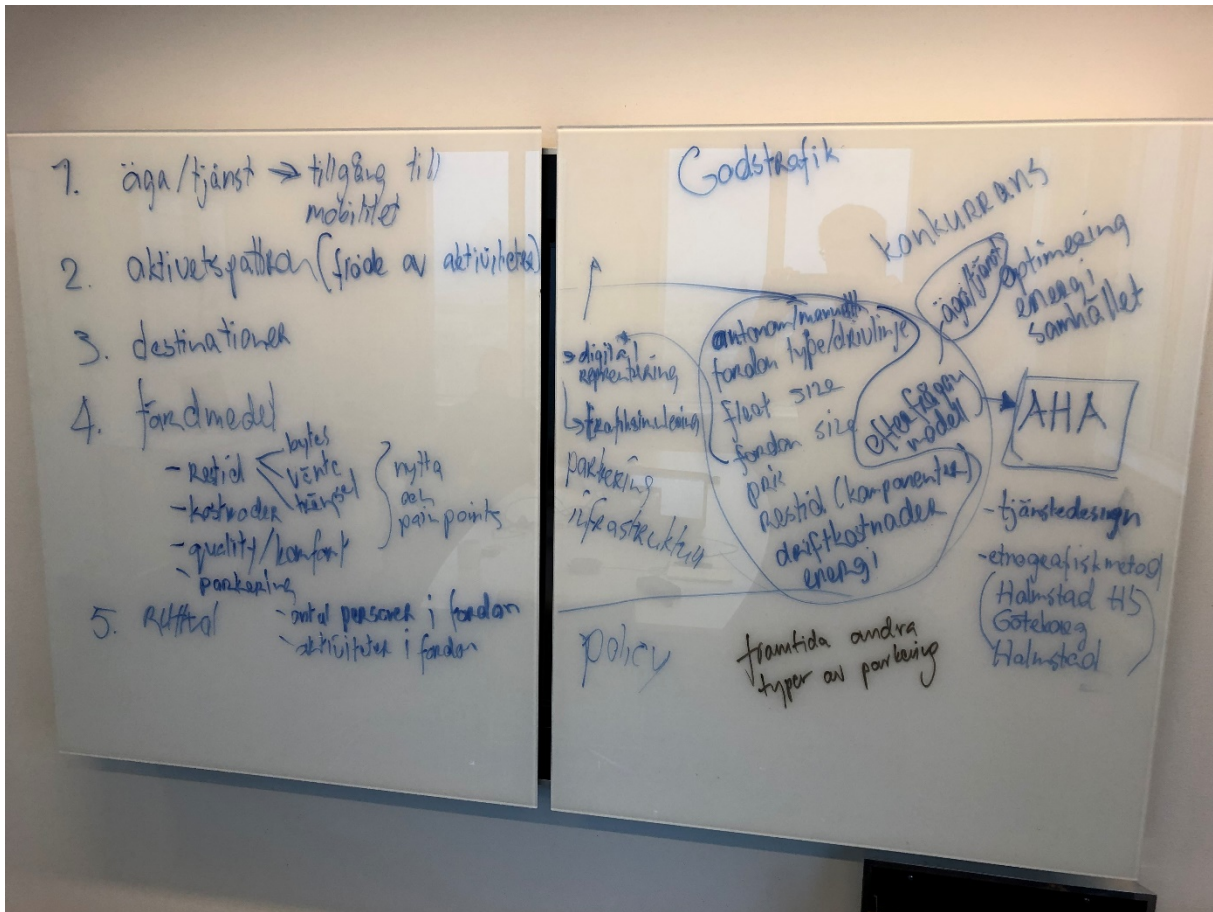 1. äga/tjänst → tillgång till
mobilitet
2. aktivets pattron (flöde av aktiviteter)
3. destinationer
4. färdmedel
- Restid
bytes
vänte
trängsel
- kostnader
- quality/konfort
- parkering
nytta
och
pain points
5. Ruttval
- antal personer i fordon
- aktiviteter i fordon
Godstrafik
konkurrans
äga/tjänst
optimering
energi
samhället
digital
trafiksimulering
parkering
infrastruktur
policy
autonom/manuell
fordon type/drivlinje
fleet size
fordon size
pris
Restid (komponenter)
driftkostnader
energi
efterfrågan
modell
AHA
- tjänstedesign
- etnografisk metod
Halmstad HS
Göteborg
Halmstad
framtida andra
typer av parkering